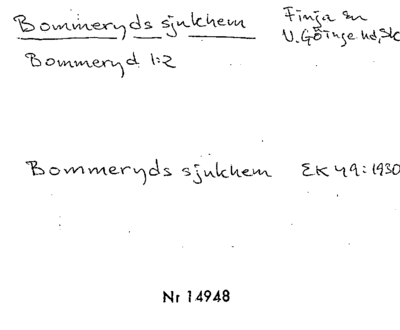 Bommeryds sjukhem Finja sn
Bommeryd 1:2 V. Göinge hd, Sk
Bommeryds sjukhem EK 49:1930
Nr 14948